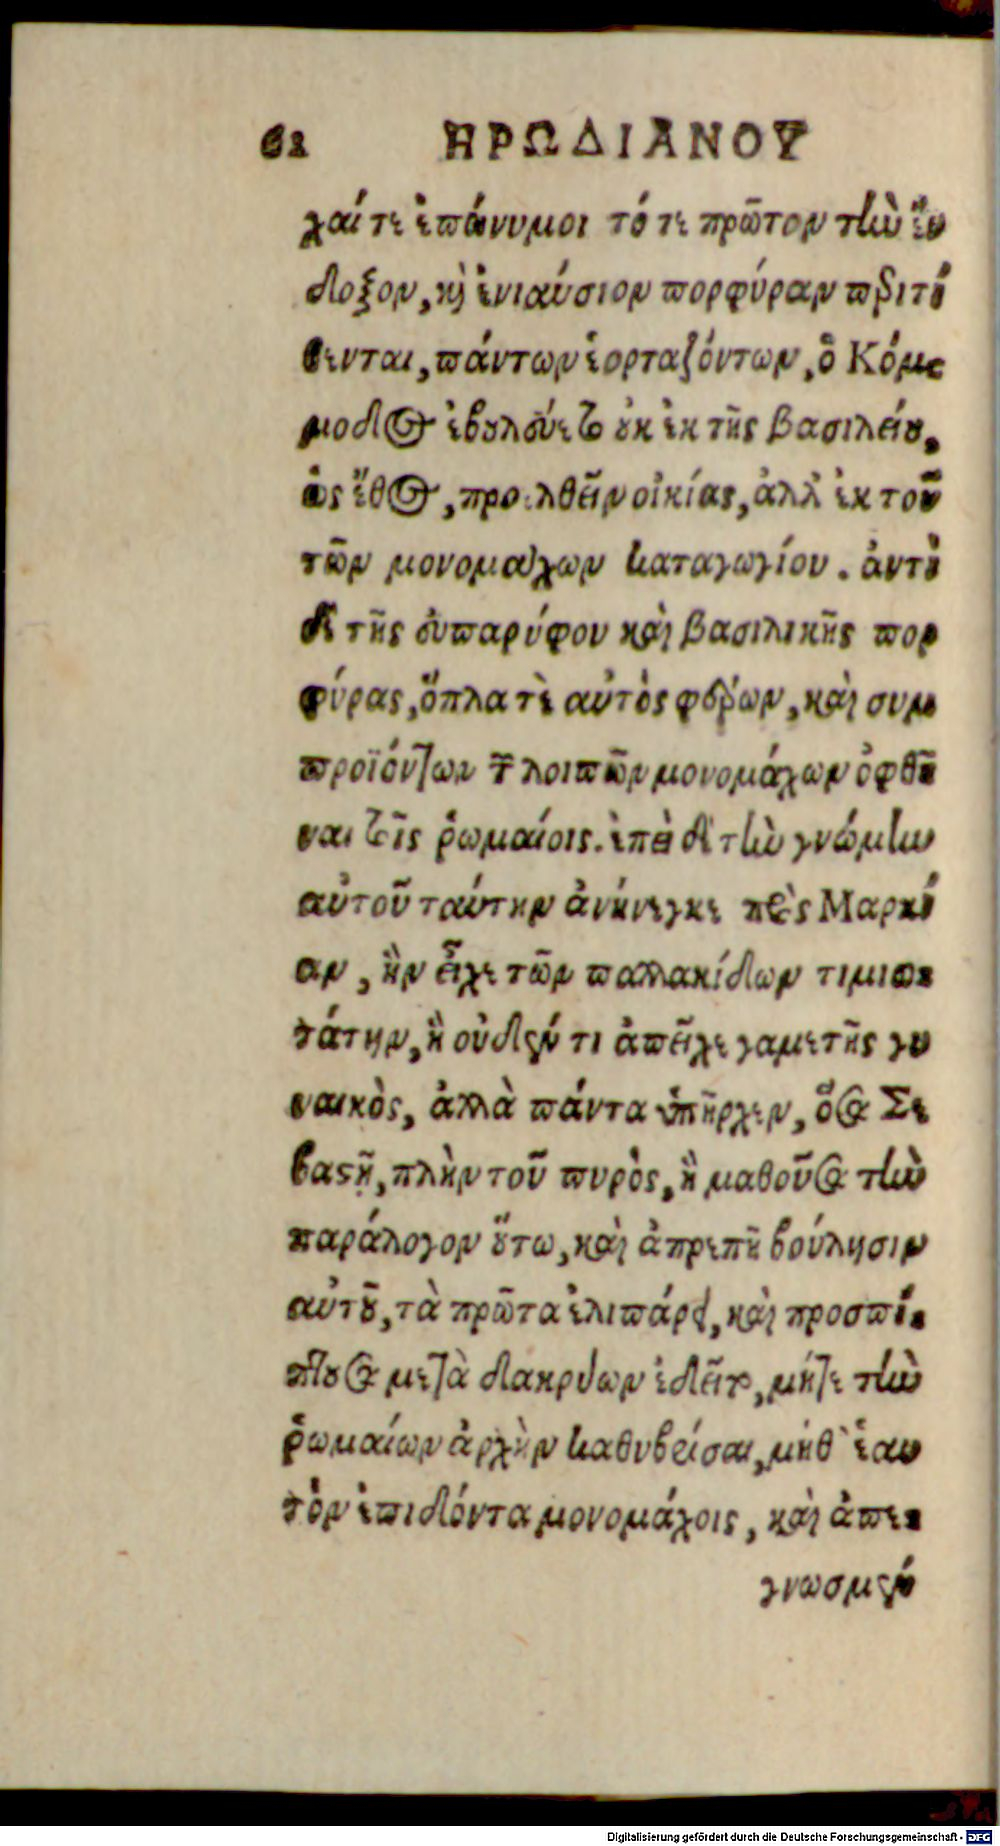 62 ΗΡΩΔΙΑΝΟΥ
χαί τε ἐπώνυμοι τότε πρῶτον τὴν ἔν
δοξον, καὶ ἐνιαύσιον πορφύραν περιτί
θενται, πάντων ἑορταζόντων, ὁ Κόμ-
μοδος ἐβουλεύετο οὐκ ἐκ τῆς βασιλείου,
ὡς ἔθος, προελθεῖν οἰκίας, ἀλλ' ἐκ τοῦ
τῶν μονομάχων καταγωγίου. ἀντὶ
δὲ τῆς εὐπαρύφου καὶ βασιλικῆς πορ
φύρας, ὅπλα τὲ αὐτὸς φέρων, καὶ συμ
προϊόντων τῶν λοιπῶν μονομάχων ὀφθῆ
ναι τοῖς ῥωμαίοις. ἐπεὶ δὲ τὴν γνώμην
αὐτοῦ ταύτην ἀνήνεγκε πρὸς Μαρκί
αν, ἣν εἶχε τῶν παλλακίδων τιμιω-
τάτην, ἣ οὐδέν τι ἀπεῖχε γαμετῆς γυ
ναικὸς, ἀλλὰ πάντα ὑπῆρχεν, ὅσα Σε
βαστῇ, πλὴν τοῦ πυρὸς, ἣ μαθοῦσα τὴν
παράλογον οὕτω, καὶ ἀπρεπῆ βούλησιν
αὐτοῦ, τὰ πρῶτα ἐλιπάρει, καὶ προσπί-
πτουσα μετὰ δακρύων ἐδεῖτο, μήτε τὴν
ῥωμαίων ἀρχὴν καθυβρίσαι, μήθ' ἑαυ
τὸν ἐπιδόντα μονομάχοις, καὶ ἀπε-
γνωσμέν
Digitalisierung gefördert durch die Deutsche Forschungsgemeinschaft - DFG